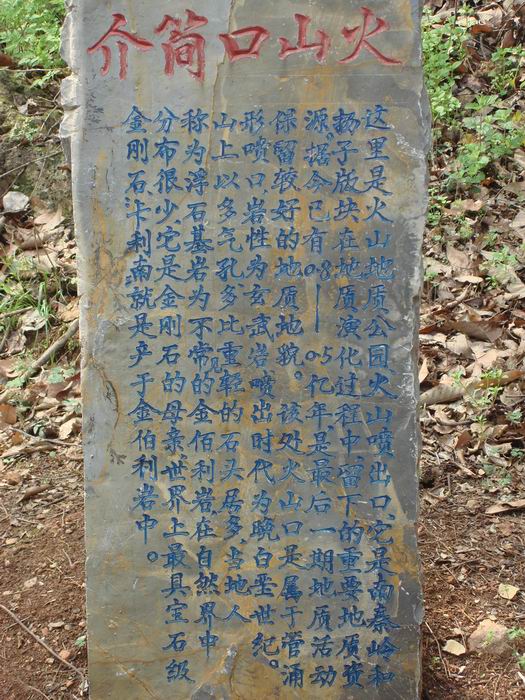 火山口简介
这里是火山地质公园火山喷出口,它是南秦岭和
扬子版块在地质演化过程中,留下的重要地质资
源。据今已有0.8—0.5亿年,是最后一期地质活动
保留较好的地质地貌。该处火山口是属于管涌
形喷口,岩性为玄武岩,喷出时代为晚白垩世纪。
山上以多气孔,多比重轻的石头居多,当地人
称为浮石,基岩为不常见的金佰利岩在自然界中
分布很少,它是金刚石的母亲,世界上最具宝石级
金刚石,卡利南就是产于金伯利岩中。